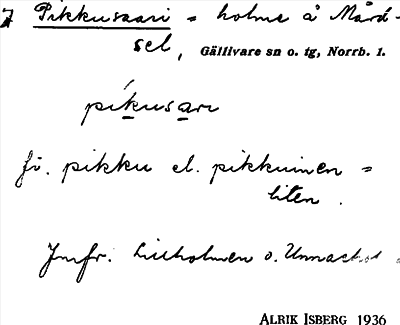 7 Pikkusaari = holme å Mård-
sel, Gällivare sn o. tg, Norrb. l.
píkusari
fi. pikku el. pikkuinen =
liten.
Jmfr. Lillholmen o.
ALRIK ISBERG 1936